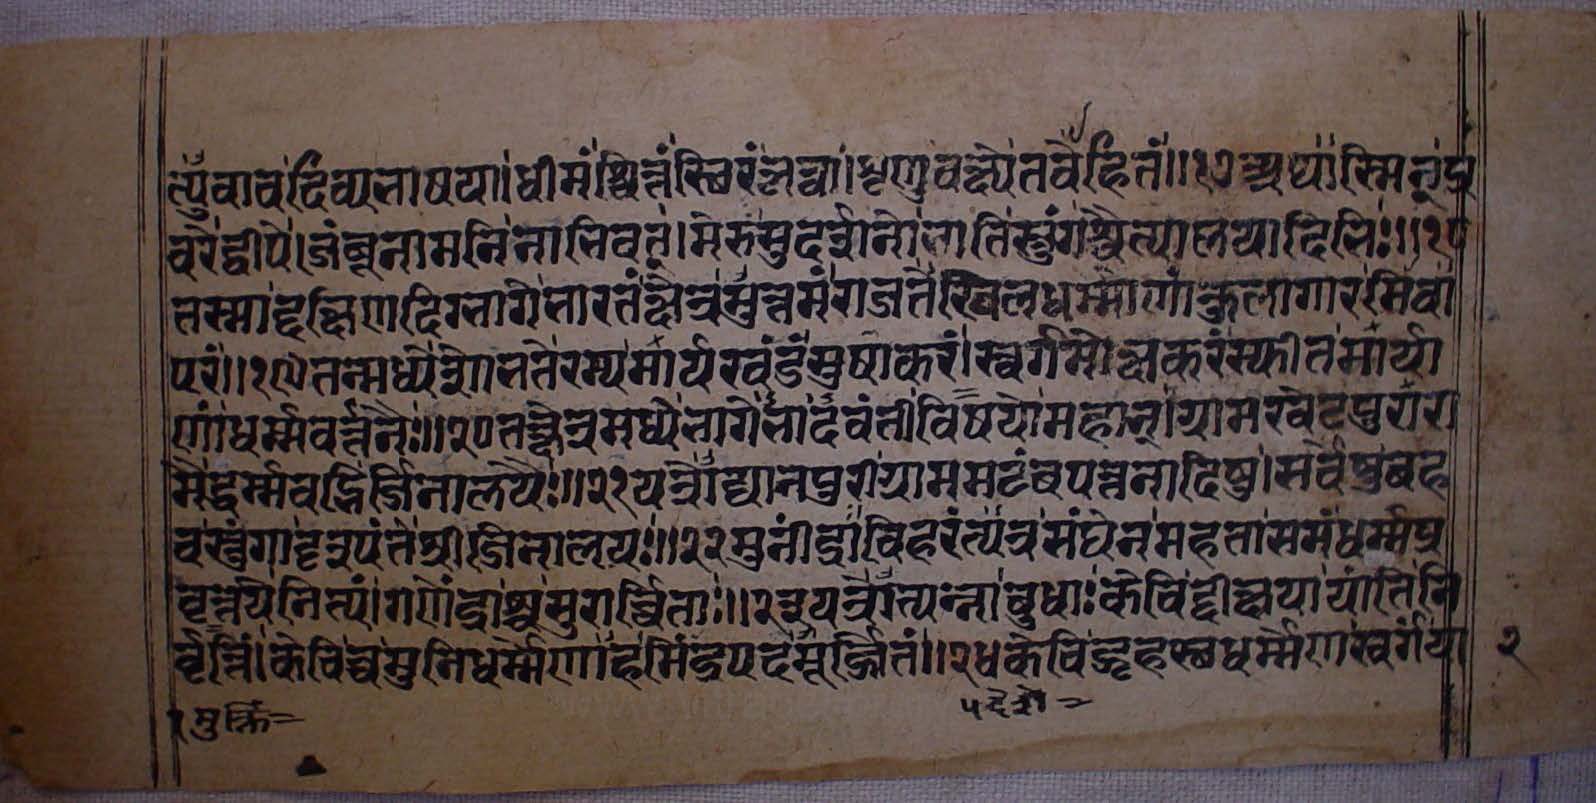 त्युवाव दिव्यभाषया। धीमंश्चित्तं स्थिरं कृत्वा। शृणु वक्ष्ये तवेहितं॥१७ अथास्मिन् प्र
वरे द्वीपे। जंबूनामनि नाभिवत्। मेरुः सुदर्शनो भाति स्तुंगश्चैत्यालयादिभिः॥१८
तस्माद्दक्षिणदिग्भागे भारतं क्षेत्रमुत्तमं राजते खिलधर्म्माणां कुलागारमिवा
परं॥१९ तन्मध्ये शोभते रम्यमार्यखंडं सुषाकरं। स्वर्गमोक्षकरं स्फीतमार्या
णां धर्म्मवर्त्तनैः॥२० तत्क्षेत्रमध्यभागे भादवंती विषयो महान्। ग्रामखेटपुरारा
मैर्द्धर्म्मवद्भिर्जिनालयैः॥२१ यत्रोद्यानपुरीग्राममटंबपत्तनादिषु। सर्वेषु बह
वस्तुंगा दृश्यंते श्रीजिनालयाः॥२२ मुनींद्रा विहरंत्यत्र संघेन महता समं धर्म्मप्र
वृत्तये नित्यं। गणेंद्राश्च सुरार्च्चिताः॥२३ यत्रोत्पन्ना बुधाः केचिद्दीक्षया यांति नि
र्वृत्तिं। केचिच्च मुनिधर्म्मेणाहमिंद्रपदमूर्ज्जितं॥२४ केचिद्गृहस्थधर्म्मेण स्वर्गं या
२
१ मुक्तिं=
५ देशे=